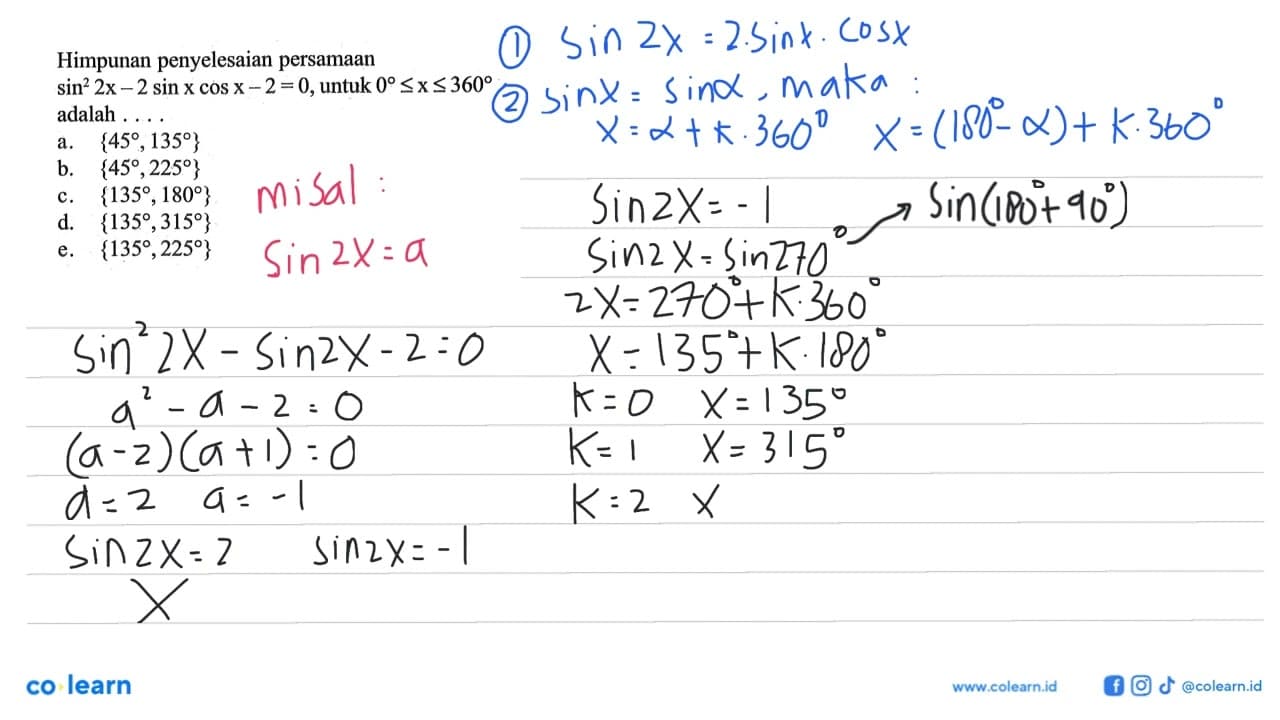 Himpunan penyelesaian persamaan
sin² 2x – 2 sin x cos x – 2 = 0, untuk 0° ≤ x ≤ 360°
adalah . . . .
a. {45°, 135°}
b. {45°, 225°}
c. {135°, 180°}
d. {135°, 315°}
e. {135°, 225°}
① Sin 2x = 2.Sinx. Cosx
② sinx = sinα, maka :
x = α + k.360° x = (180° - α) + k.360°
misal :
Sin 2x = a
Sin² 2x - Sin2x - 2 = 0
a² - a - 2 = 0
(a-2)(a+1) = 0
a = 2 a = -1
Sin2x = 2 sin2x = -1
X
Sin2x = -1
Sin2x = Sin270° → Sin(180°+90°)
2x = 270° + k.360°
x = 135° + k.180°
k = 0 x = 135°
k = 1 x = 315°
k = 2 X
co learn
www.colearn.id
@colearn.id